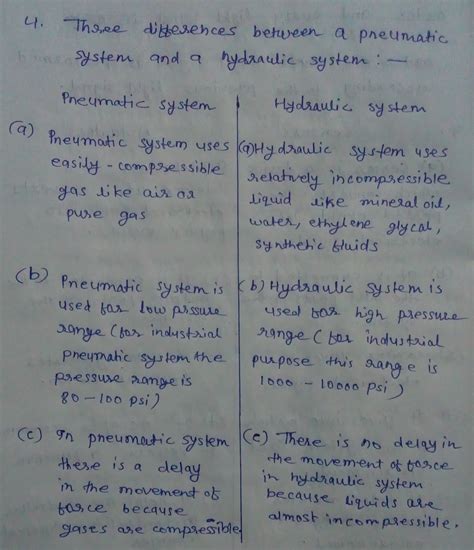 4. Three differences between a pneumatic
system and a hydraulic system : —
Pneumatic system
(a) Pneumatic system uses
easily - compressible
gas like air or
pure gas
(b) Pneumatic system is
used for low prssure
range (for industrial
pneumatic system the
pressure range is
80 - 100 psi)
(c) In pneumatic system
there is a delay
in the movement of
force because
gases are compressible
Hydraulic system
(a) Hydraulic system uses
relatively incompressible
liquid like mineral oil,
water, ethylene glycal,
synthetic fluids
(b) Hydraulic system is
used for high pressure
range (for industrial
purpose this range is
1000 - 10000 psi)
(c) There is no delay in
the movement of force
in hydraulic system
because liquids are
almost incompressible.